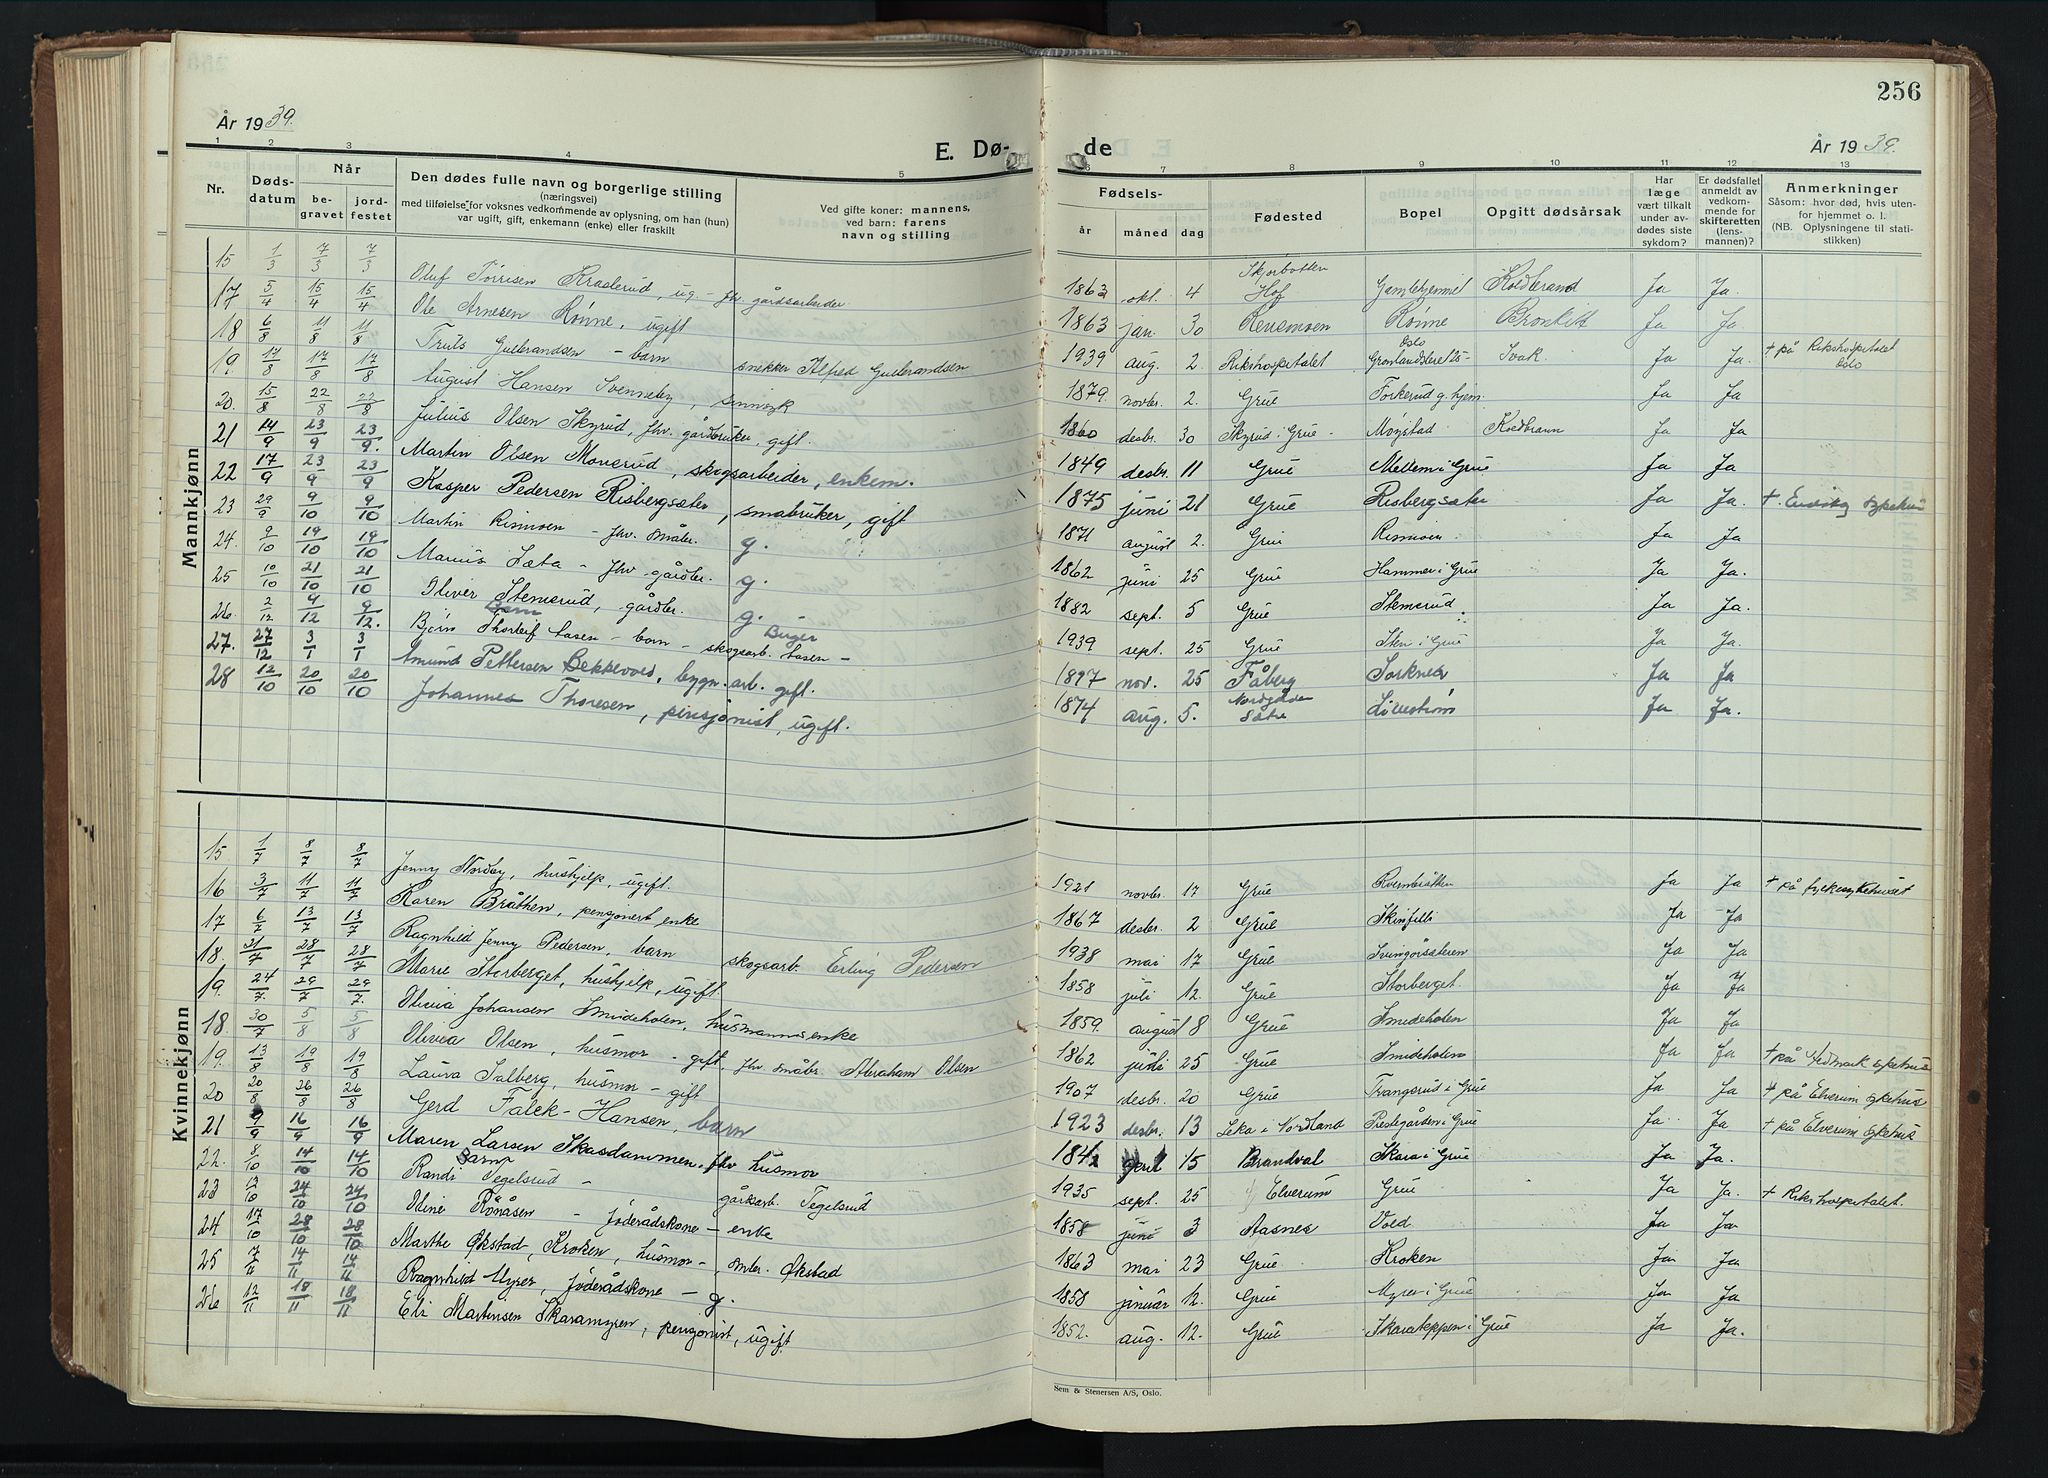 256
År 1939.
E. Dø-
de
År 1939.
1 2 3 4 5 6 7 8 9 10 11 12 13
Nr.
Døds-
datum
Når
be-
gravet
jord-
festet
Den dødes fulle navn og borgerlige stilling
(næringsvei)
med tilføielse for voksnes vedkommende av oplysning, om han (hun)
var ugift, gift, enkemann (enke) eller fraskilt
Ved gifte koner: mannens,
ved barn: farens
navn og stilling
Fødsels-
år
måned
dag
Fødested
Bopel
Opgitt dødsårsak
Har
læge
vært tilkalt
under av-
dødes siste
sykdom?
Er dødsfallet
anmeldt av
vedkom-
mende for
skifteretten
(lens-
mannen)?
Anmerkninger
Såsom: hvor død, hvis uten-
for hjemmet o. l.
(NB. Oplysningene til stati-
stikken)
Mannkjønn
15 1/3 7/3 7/3 Oluf Tørrisen Kraslerud, ug. - fhv. gårdsarbeider 1863 okt. 4 Skjorbotten Hof Gamlehjemmet Koldbrand Ja Ja.
17 5/4 15/4 15/4 Ole Arnesen Rønne, ugift 1863 jan. 30 Rensmoen Rønne Bronkit Ja Ja
18 6/8 11/8 11/8 Truls Gulbrandsen - barn snekker Alfred Gulbrandsen 1939 aug. 2. Rikshospitalet Oslo Grønlandsleret Svak. Ja Ja. + på Rikshospitalet Oslo
19. 17/8 17/8 August Hansen Svenneby, sinnsyk 1879. novbr. 2. Grue Forkerud g. hjem. Ja Ja
20. 15/8 22/8 22/8 Julius Olsen Skyrud, fhv. gårdbruker, gift. 1860 desbr. 30 Skyrud i Grue - Møystad Koldbrann Ja Ja
21 14/9 23/9 23/9. Martin Olsen Monerud, skogsarbeider, enkem. 1849 desbr. 11 Grue Mellem i Grue Ja Ja
22 17/9 23/9 23/9 Kasper Pedersen Risbergsæter, småbruker, gift 1875 juni 21 Grue Risbergsæter Ja Ja. +
23 29/9 9/10 9/10 Martin Rismoen - fhv. småbr. g. 1871 august 2. Grue Rismoen Ja Ja
24. 9/10 19/10 19/10 Marius Læta - fhv. gårdbr. g. 1862 juni 25 Grue Hammer i Grue Ja Ja.
25 10/10 21/10 21/10 Oliver Stemerud, gårdbr. g. 1882 sept. 5 Grue Stemerud Ja Ja.
26. 2/12 9/12 9/12. Bjørn Thorleif Lasen - barn - skogsarb. Birger Lasen - 1939 sept. 25 Grue Sten i Grue Ja Ja.
27. 27/12 3/1 3/1 Amund Pettersen Bekkevold, bygn. arb. gift. 1897 nov. 25 Fåberg Sorknes Ja Ja
28 12/10 20/10 20/10 Johannes Thoresen, pensjonist, ugift. 1874 aug. 5. Nordgården Sætre Lillestrøm Ja Ja.
Kvinnekjønn
15 1/7 8/7 8/7 Jenny Nordby, hushjelp, ugift. 1921 novbr. 17 Grue Kvernbråtten Ja Ja + på fylkessykehuset
16 3/7 11/7 11/7 Karen Bråthen, pensjonert enke 1867 desbr. 2 Grue Skinfelli Ja Ja
17 6/7 13/7 13/7 Ragnhild Jenny Pedersen, barn skogsarb. Erling Pedersen 1938 mai 17 Grue Ja Ja
18. 21/7 28/7 28/7 Marie Storberget, hushjelp, ugift. 1858 juli 12. Grue Storberget. Ja Ja
19. 24/7. 29/7 29/7. Olivia Johansen Smideholen, husmannsenke 1859. august 8 Grue Smideholen Ja Ja
18. 30/7 5/8 5/8 Olivia Olsen, husmor - gift, fhv. småbr. Abraham Olsen 1862 juli 25 Grue Smideholen Ja Ja + på Hedmark sykehus
19. 13/8 19/8 19/8 Laura Salberg, husmor - gift 1907 desbr. 20 Grue Tvangsrud i Grue Ja Ja + på Elverum sykehus
20 20/8 26/8 26/8 Gerd Falck-Hansen, barn 1923 desbr. 13 Leka i Nordland Prestegården i Grue Ja Ja + på Elverum sykehus
21 9/9 16/9 16/9 Maren Larsen Skasdammen, fhv husmor 184 april 15 Brandval Skara i Grue Ja Ja.
22. 8/10 14/10 14/10 Randi Tegelsrud - barn gårdsarb. Tegelsrud 1935 sept. 25 Elverum Grue Ja Ja. + Rikshospitalet.
23 13/10 24/10 24/10 Oline Rønåsen - føderådskone - enke 1858 juni 3 Aasnes Vold Ja Ja
24 17/10 28/10 28/10 Marthe Økstad, Kroken, husmor - småbr. Økstad 1863 mai 23 Grue Kroken Ja Ja
25 7/11 14/11 14/11 Ragnhild Myrer, føderådskone - g. 1858 januar 12. Grue Myrer i Grue Ja Ja
26 12/11 18/11 18/11 Eli Martinsen Skaramyren, pensjonist, ugift 1852. aug. 12. Grue i Grue Ja Ja.
Sem & Stenersen A/S, Oslo.